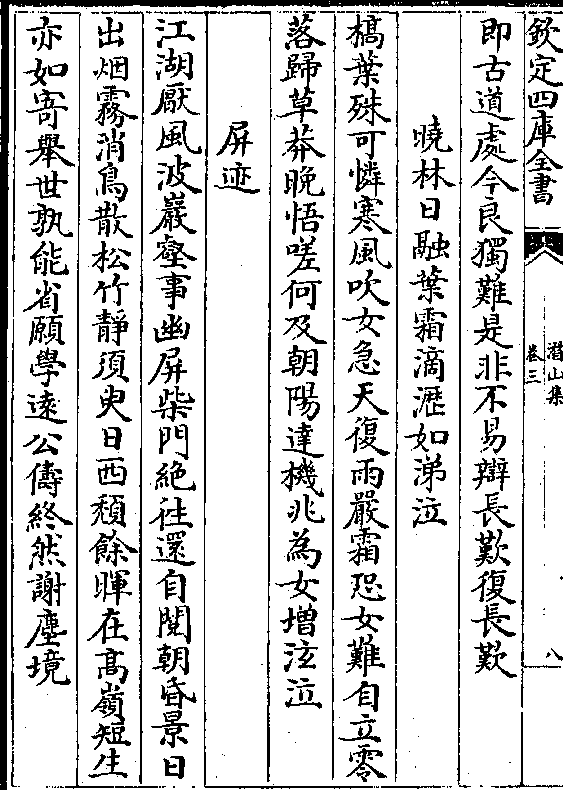 欽定四庫全書
潛山集
卷三
八
即古道處今良獨難是非不易辯長歎復長歎
曉林日融葉霜滴瀝如涕泣
槁葉殊可憐寒風吹女急天復雨嚴霜恐女難自立零
落歸草莽晚悟嗟何及朝陽達機兆為女增泫泣
屏迹
江湖厭風波巖壑事幽屏柴門絶往還自閱朝昏景日
出烟霧消鳥散松竹靜須臾日西頹餘暉在髙嶺短生
亦如寄舉世孰能省願學遠公儔終然謝塵境